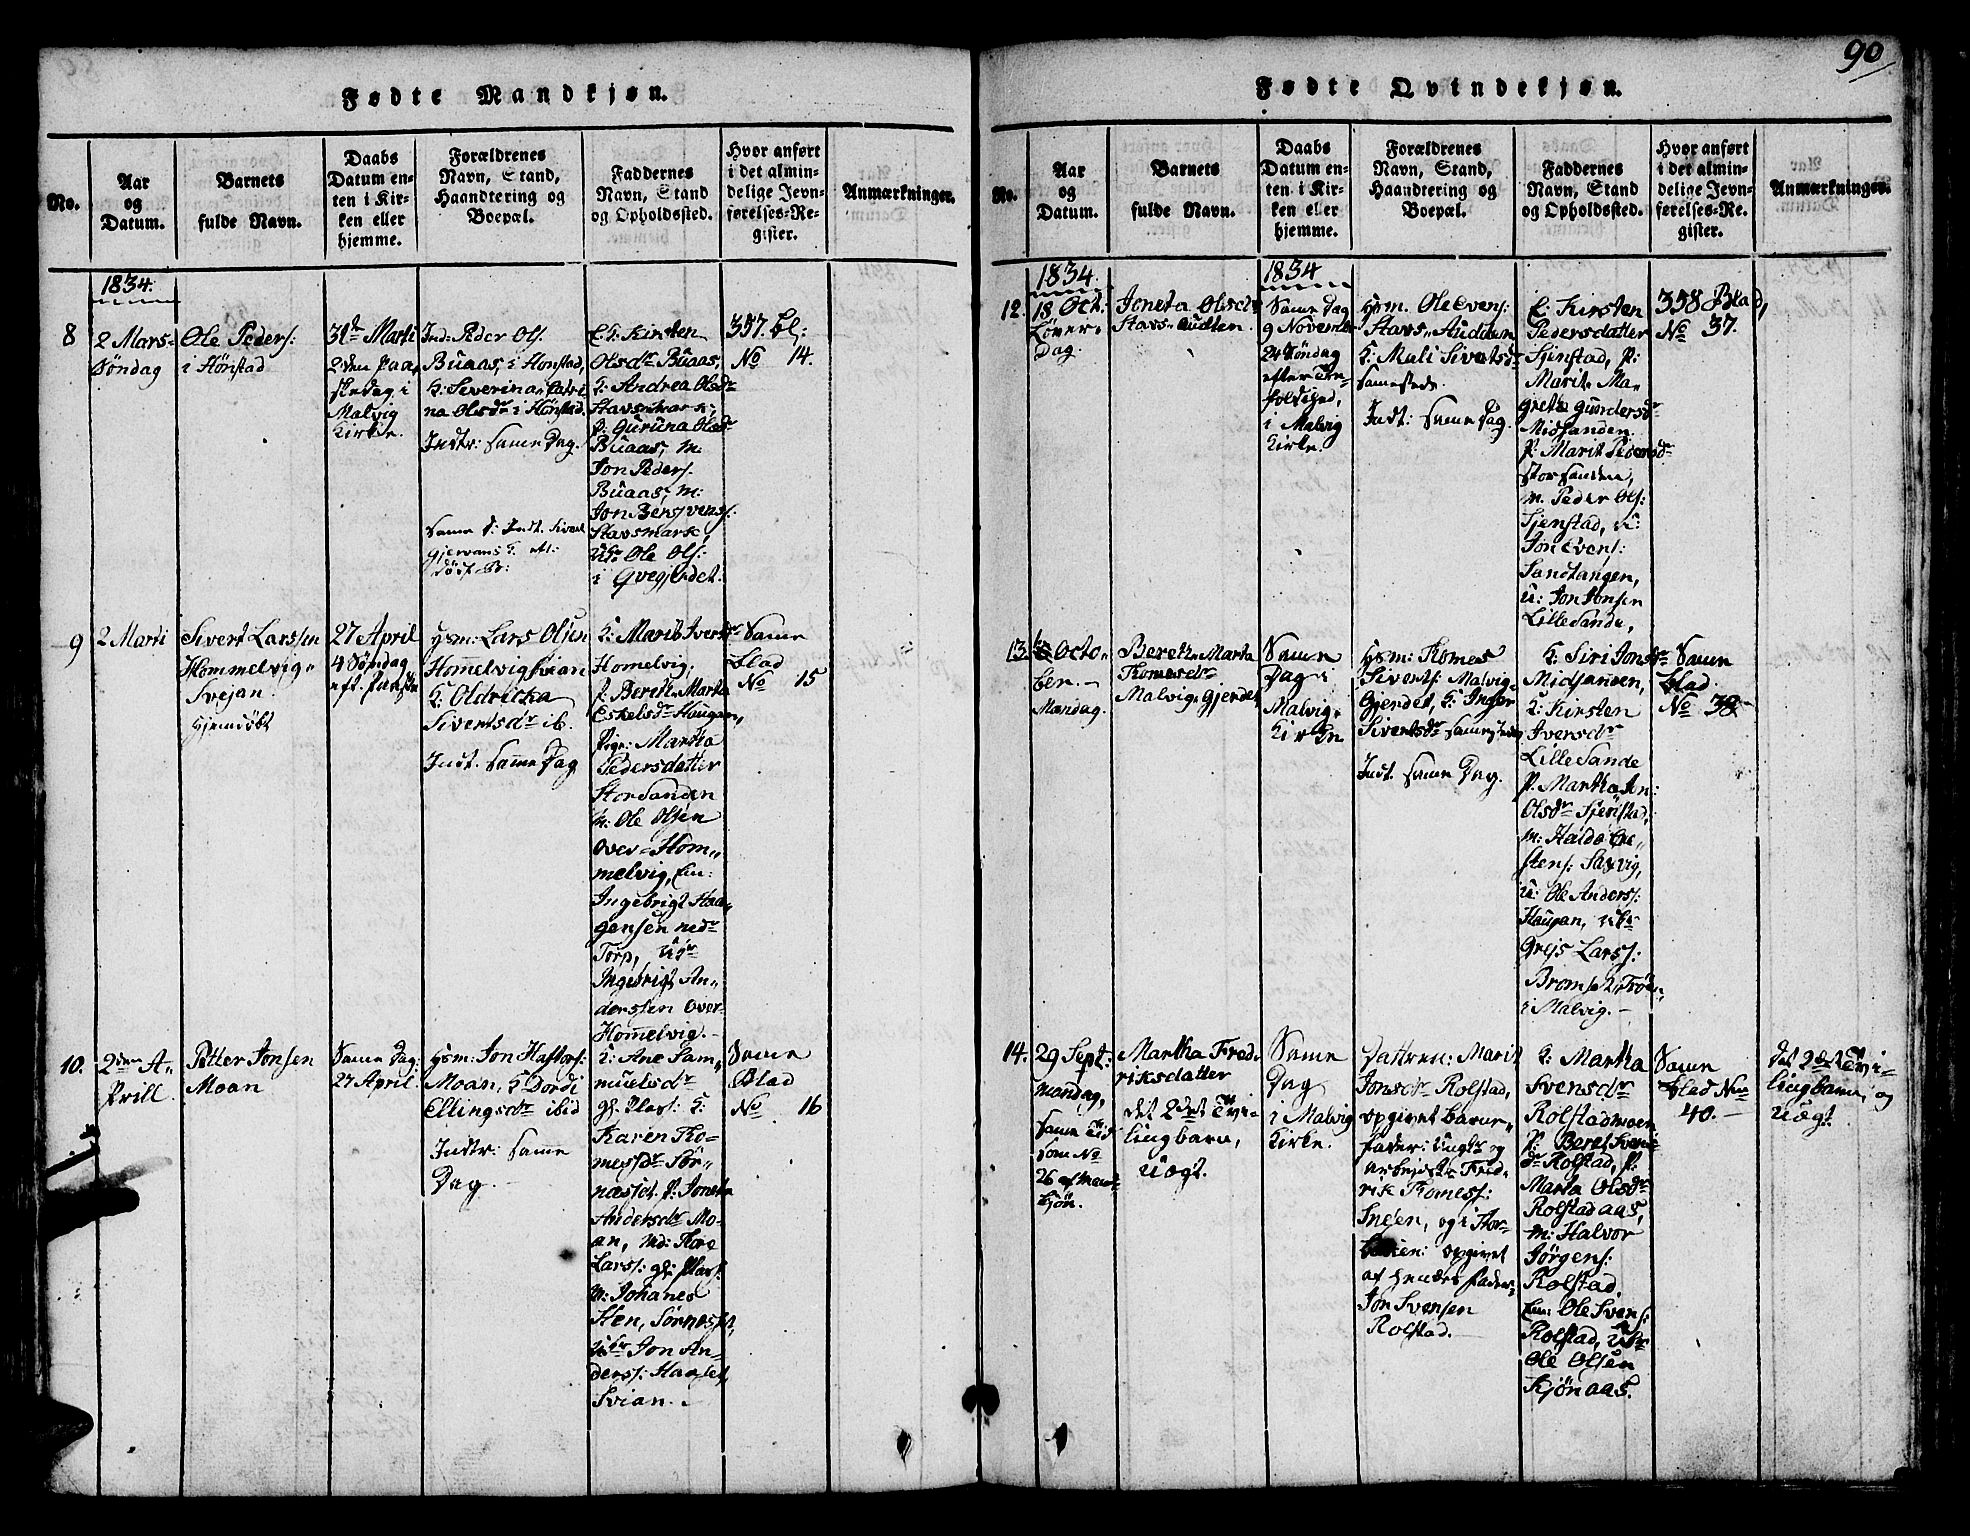 90
Fødte Mandkjøn.
No.
Aar
og
Datum.
Barnets
fulde Navn.
Daabs
Datum en-
ten i Kir-
ken eller
hjemme.
Forældrenes
Navn, Stand,
Haandtering og
Boepæl.
Faddernes
Navn, Stand
og Opholdssted.
Hvor anført
i det almin-
delige Jevn-
førelses-Re-
gister.
Anmærkninger.
1834.
8
2 Mars-
Søndag
Ole Peders:
i Hönstad
31te Marti
2den Paa-
skedag i
Malvig
Kirke.
Ind: Peder Ols.
Buaas, i Hönstad,
K: Severina Catri
na Olsdr i Hönstad.
Indtr: samme Dag.
Samme D: Indt. Sivert
Gjervans K.
født Br:
E K: Kirsten
Olsdr Buaas,
K: Andrea Olsdr
Stavsmark,
P: Guruna Olsdr
Buaas, M:
Jon Peders.
Buaas, M:
Jon Bersvens:
Stavsmark,
Uk: Ole Ols:
i Qvegjerdet.
357. Bl:
No 14.
9
2 Marti
Sivert Larssen
Hommelvig-
Svejan.
Hjemdøbt
27 April
4 Søndag
eft. Paaske
Hsm: Lars Olsen
Hommelvigsvian
K: Oldricka
Sivertsdr ib.
Indt. samme Dag
K: Marit Iversdr
Homelvig.
P: Berith Marta
Eskelsdr Haugan,
Pige: Martha
Pedersdatter
Storsanden
M: Ole Olsen
Over-Hom-
melvig, Em:
Ingebrigt Haa-
gensen nedr
Torp, Ugr
Ingebrigt An-
derssen Over-
Hommelvig.-
Samme
Blad
No 15
10.
2den A-
prill.
Petter Jonsen
Moan
Samme Dag:
27 April.
Hsm: Jon Haftors:
Moan, K Dordi
Ellingsdr ibid
Indtr: samme
Dag.
K: Ane Sam-
muelsdr
Gl: Plads: K:
Karen To-
mesdr Sör-
næssdt. P: Joneta
Andersdr Mo-
an, Md: Tore
Larss: Gl: Plads
M: Johanes
Sten, Sörnesset,
Ukr Jon An-
derss: Haarset
Svian.
Samme
Blad
No 16
Fødte Qvindekjøn.
No.
Aar
og
Datum.
Barnets
fulde Navn.
Daabs
Datum en-
ten i Kir-
ken eller
hjemme.
Forældrenes
Navn, Stand,
Haandtering og
Boepæl.
Faddernes
Navn, Stand
og Opholdssted.
Hvor anført
i det almin-
delige Jevn-
førelses-Re-
gister.
Anmærkninger.
1834.
1834
12.
18 Oct.
Löver-
Dag.
Joneta Olsdr
Stavs-Audten.
Samme Dag
9 November
24 Söndag
efter Tre-
foldighed,
i Malvig
Kirke.
Hsm. Ole Evens:
Stavs-Auduen
K: Mali Sivertsdr
Sammestede.
Indt: samme Dag.
E. Kirsten
Pedersdatter
Sjenstad, P:
Marit Ma-
greta Gundersdr
Midsanden.
P: Marit Pedersdr
Storsanden,
M. Peder Ols:
Sjenstad, U:
Jon Evens:
Sandtangen,
U: Jon Jonsen
Lillesande,
358 Blad,
No 37.
13.
Octo-
ber.-
Mandag.
Bereth Marta
Tomesdr
Malvig-Gjerdet
Samme
Dag i
Malvig-
Kirke
Hsm: Tomes
Siverts: Malvig-
Gjerdet, K: Inger
Sivertsdr sammestede
Indt. samme Dag.
K: Siri Jonsdr
Midsanden,
K: Kirsten
Iversdr
Lillesande
P: Martha Jon:
Olsdr Sjenstad,
M: Haldo Ere-
stens: Saxvig,
U: Ole Anderss:
Haugan, Ukr
Grejs Larss:
Bromset, Tröen,
i Malvig.-
Samme
Blad.
No 38
14.
29 Sept:
Mandag,
samme Tid
som No
26 af Mand-
kjön.
Martha Fred-
riksdatter
det 2det Tvi-
lingbarn,
uægt.
Samme
Dag
i Malvig
Kirke.
Dattren: Marit
Jonsdr Rolstad,
opgivet Barne-
fader: Ungkr og
Arbejdskr Fred-
rik Tomess:
Svejen, og i Hor-
opgivet
af hendes fader,
Jon Svensen
Rolstad.
K: Martha
Svensdr
Rolstadmoen
P: Beret Svens-
dr Rolstad, P:
Marta Olsdr
Rolstadaas,
M: Halvor
Jörgens:
Rolstad,
Em: Ole Svens:
Rolstad, Ukr
Ole Olsen
Kjönaas.
Samme
Blad No
40.-
det 2det Tvi-
lingbarn, og
Uægt.